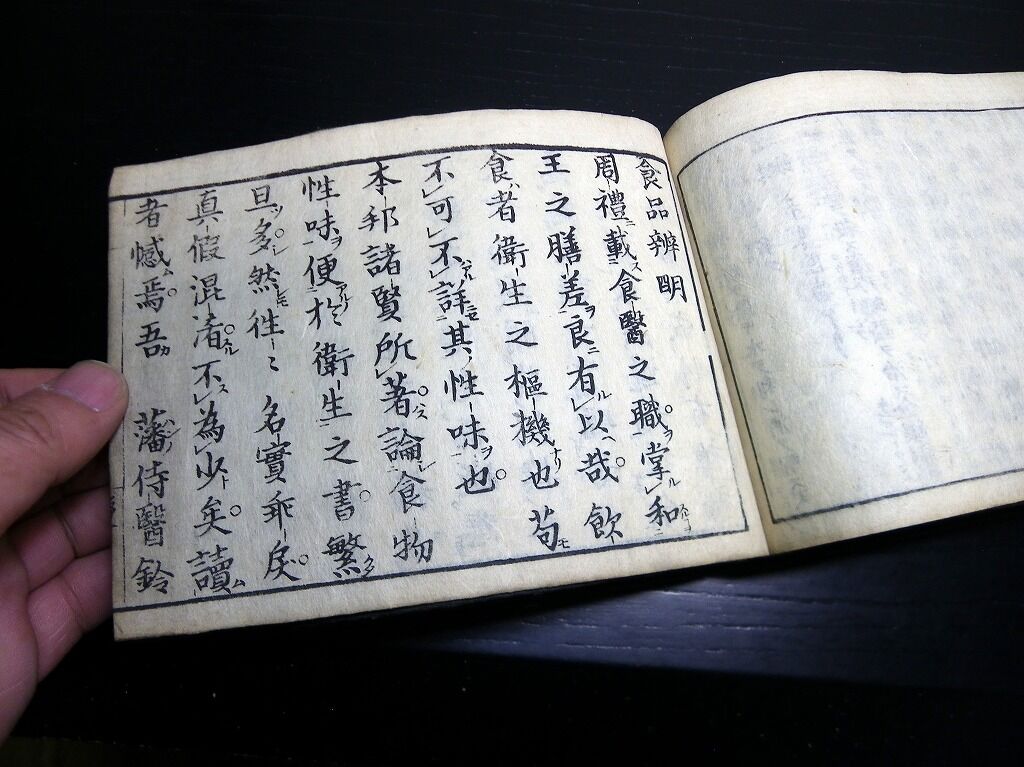 食品辨明
周禮載食醫之職。掌和
王之膳差良有以哉。飲
食者衛生之樞機也苟
不可不詳其性味也。
本邦諸賢所著論食物
性味便於衛生之書。繁
且多。然徃〻名實乖戾。
真假混淆。不為少矣。讀
者憾焉。吾 藩侍醫鈴